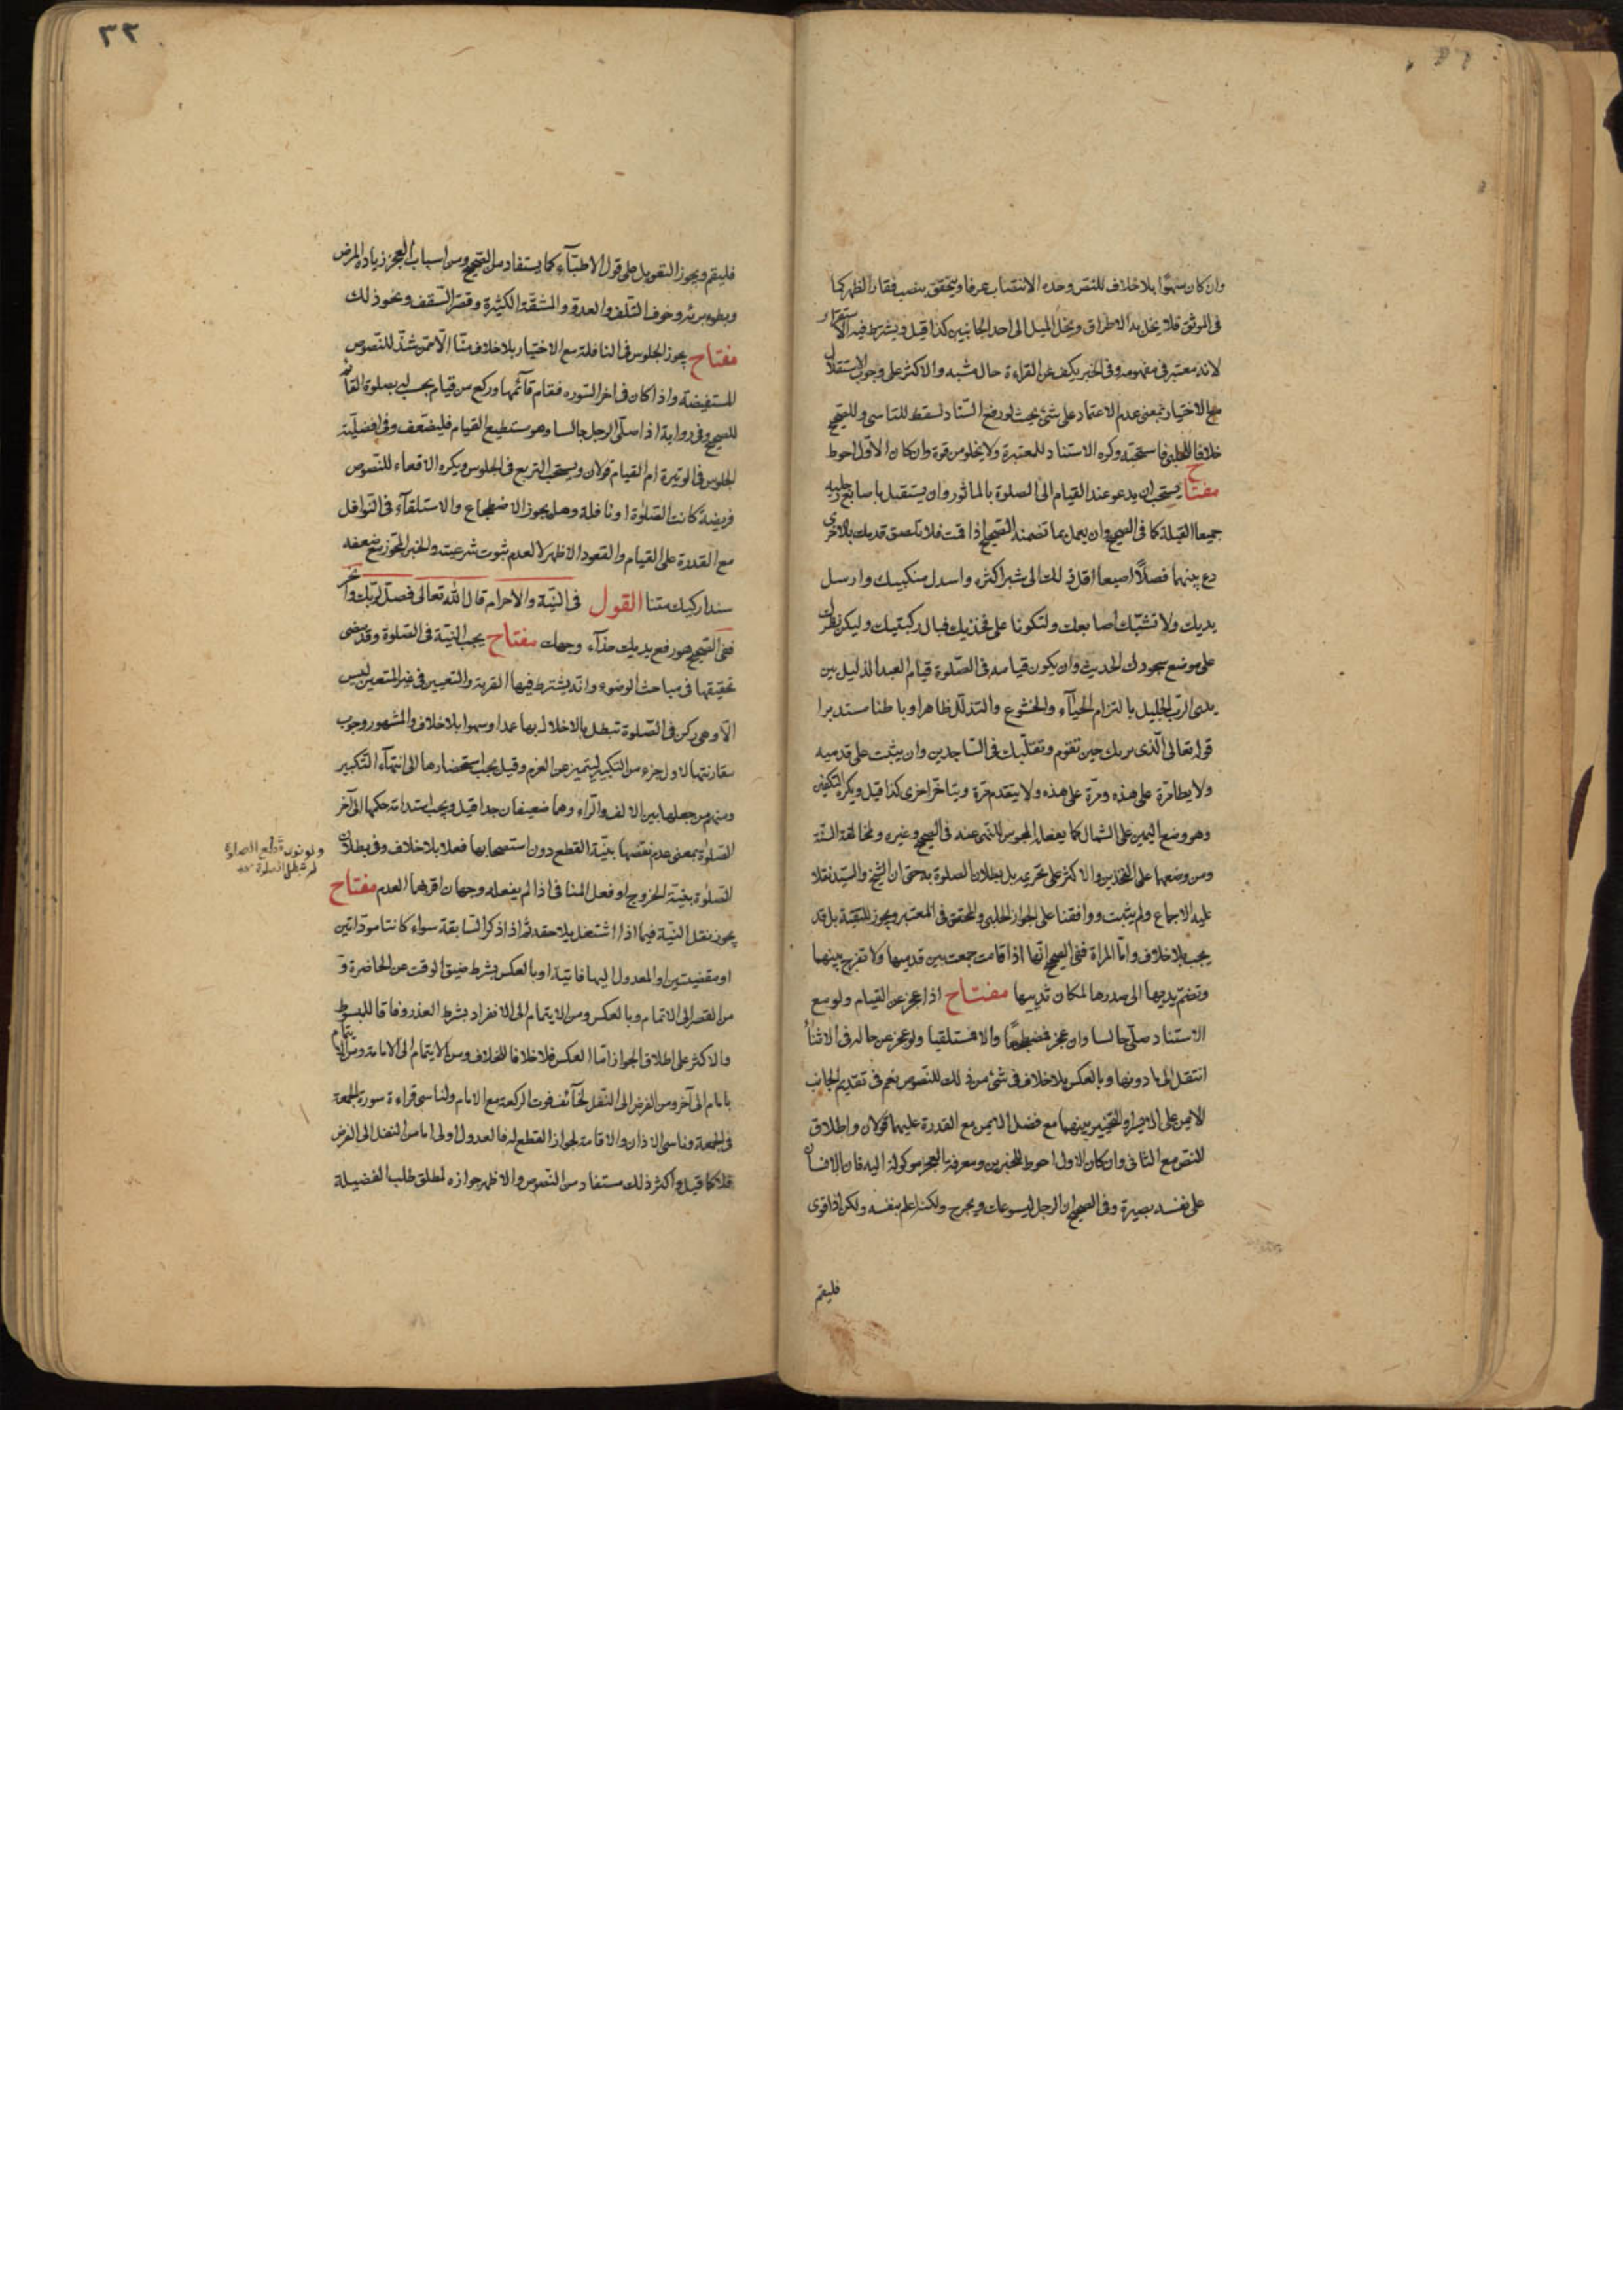 وان كان سهوًا بلا خلاف للنص وحده الانتصاب عرفا ويتحقق بنصب فقار الظهر كما
فى الموثق فلا يخل به الاطراق ويخل الميل الى احد الجانبين كذا قيل ويشترط فيه الاستقرار
لانه معتبر فى مفهومه وفى الخبر يكف عن القراءة حال مشيه والاكثر على وجوب الاستقلال
مع الاختيار بمعنى عدم الاعتماد على شئ بحيث لو رفع السناد لسقط للتاسى وللصحيح
خلافا للحلبى فاستحبه وكره الاستناد للمعتبرة ولا يخلو من قوة وان كان الاول احوط
مفتاح يستحب ان يدعو عند القيام الى الصلوة بالماثور وان يستقبل باصابع رجليه
جميعا القبلة كما فى الصحيح وان يعمل بما تضمنه الصحيح اذا قمت فلا تلصق قدمك بالاخرى
دع بينهما فصلاً اصبعا اقل ذلك الى شبر اكثره واسدل منكبيك وارسل
يديك ولا تشبّك اصابعك ولتكونا على فخذيك قبال ركبتيك وليكن نظرك
على موضع سجودك الحديث وان يكون قيامه فى الصّلوة قيام العبد الذليل بين
يدى الرب الجليل بالتزام الحيآء والخشوع والتذلّل ظاهرا وباطنا متدبرا
قوله تعالى الّذى يريك حين تقوم وتقلّبك فى السّاجدين وان يثبت على قدميه
ولا يطا مرّة على هذه ومرّة على هذه ولا يتقدم مرّة ويتاخّر اخرى كذا قيل ويكره التكفير
وهو وضع اليمين على الشمال كما يفعله المجوس للنهى عنه فى الصحيح وغيره ولمخالفة السّنة
ومن وضعهما على الفخذين والاكثر على تحريمه بل بطلان الصلوة به حتى ان الشيخ والسيّد نقلا
عليه الاجماع ولم يثبت ووافقنا على الجواز الحلبى والمحقق فى المعتبر ويجوز للتقيّة بل قد
يجب بلا خلاف وامّا المراة ففى الصحيح انّها اذا قامت جمعت بين قدميها ولا تفرّج بينهما
وتضمّ يديها الى صدرها لمكان ثدييها مفتاح اذا عجز عن القيام ولو مع
الاستناد صلّى جالسا وان عجز فمضطجعًا والا فمستلقيا ولو عجز عن حاله فى الاثناء
انتقل الى ما دونها وبالعكس بلا خلاف فى شئ من ذلك للنصوص نعم فى تقديم الجانب
الايمن على الايسر او التخيير بينهما مع فضل الايمن مع القدرة عليهما قولان واطلاق
النصّ مع الثانى وان كان الاول احوط للخبرين ومعرفة العجز موكولة اليه فان الانسان
على نفسه بصيرة وفى الصحيح ان الرجل ليوعك ويحرج ولكنه اعلم بنفسه ولكن اذا قوى
فليقم
٣٣
فليقم ويجوز التعويل على قول الاطبّآء كما يستفاد من الصحيح ومن اسباب العجز زيادة المرض
وبطوء برئه وخوف التلف والعدو والمشقّة الكثيرة وقصر السّقف ونحو ذلك
مفتاح يجوز الجلوس فى النافلة مع الاختيار بلا خلاف منّا الّا ممّن شذّ للنصوص
المستفيضة واذا كان فى اخر السّورة فقام فاتمّها وركع من قيام يحسب له بصلوة القائم
للصحيح وفى رواية اذا صلّى الرجل جالسا وهو يستطيع القيام فليضعف وفى افضليّة
الجلوس فى الوتيرة ام القيام قولان ويستحب التربع فى الجلوس ويكره الاقعاء للنصوص
فريضة كانت الصّلوة او نافلة وهل يجوز الاضطجاع والاستلقآء فى النوافل
مع القدرة على القيام والقعود الاظهر لا لعدم ثبوت شرعيته والخبر المجوّز مع ضعفه
سندا ركيك متنا القول فى النيّة والاحرام قال الله تعالى فصلّ لربّك وانحر
ففى الصّحيح هو رفع يديك حذآء وجهك مفتاح يجب النيّة فى الصّلوة وقد مضى
تحقيقها فى مباحث الوضوء وانّه يشترط فيها القربة والتعيين فى غير المتعين ليس
الّا وهى ركن فى الصّلوة تبطل بالاخلال بها عمدا وسهوا بلا خلاف والمشهور وجوب
مقارنتها لاول جزء من التكبير ليتميز عن العزم وقيل يجب استحضارها الى انتهآء التّكبير
ومنهم من جعلها بين الالف والرّاء وهما ضعيفان جدا قيل ويجب استدامة حكمها الى آخر
الصلوة بمعنى عدم نقضها بنيّة القطع دون استصحابها فعلا بلا خلاف وفى بطلان
الصّلوة بنيّة الخروج او فعل المنافى اذا لم يفعله وجهان اقربهما العدم مفتاح
يجوز نقل النيّة فيما اذا اشتغل بلاحقة ثم اذا ذكر السّابقة سواء كانتا مودّاتين
او مقضيتين او المعدول اليها فايتة او بالعكس بشرط ضيق الوقت عن الحاضرة و
من القصر الى الاتمام وبالعكس ومن الايتمام الى الانفراد بشرط العذر وفاقا للمبسوط
والاكثر على اطلاق الجواز امّا العكس فلا خلافا للخلاف ومن الايتمام الى الامامة ومن الايتمام
بامام الى آخر ومن الفرض الى النّفل لخآئف فوت الركعة مع الامام ولناسى قراءة سورة الجمعة
فى الجمعة وناسى الاذان والاقامة لجواز القطع له فالعدول اولى اما من النفل الى الفرض
فلا كما قيل واكثر ذلك مستفاد من النّصوص والاظهر جوازه لمطلق طلب الفضيلة
ولو نوى قطع الصلوة
لم تبطل الصلوة